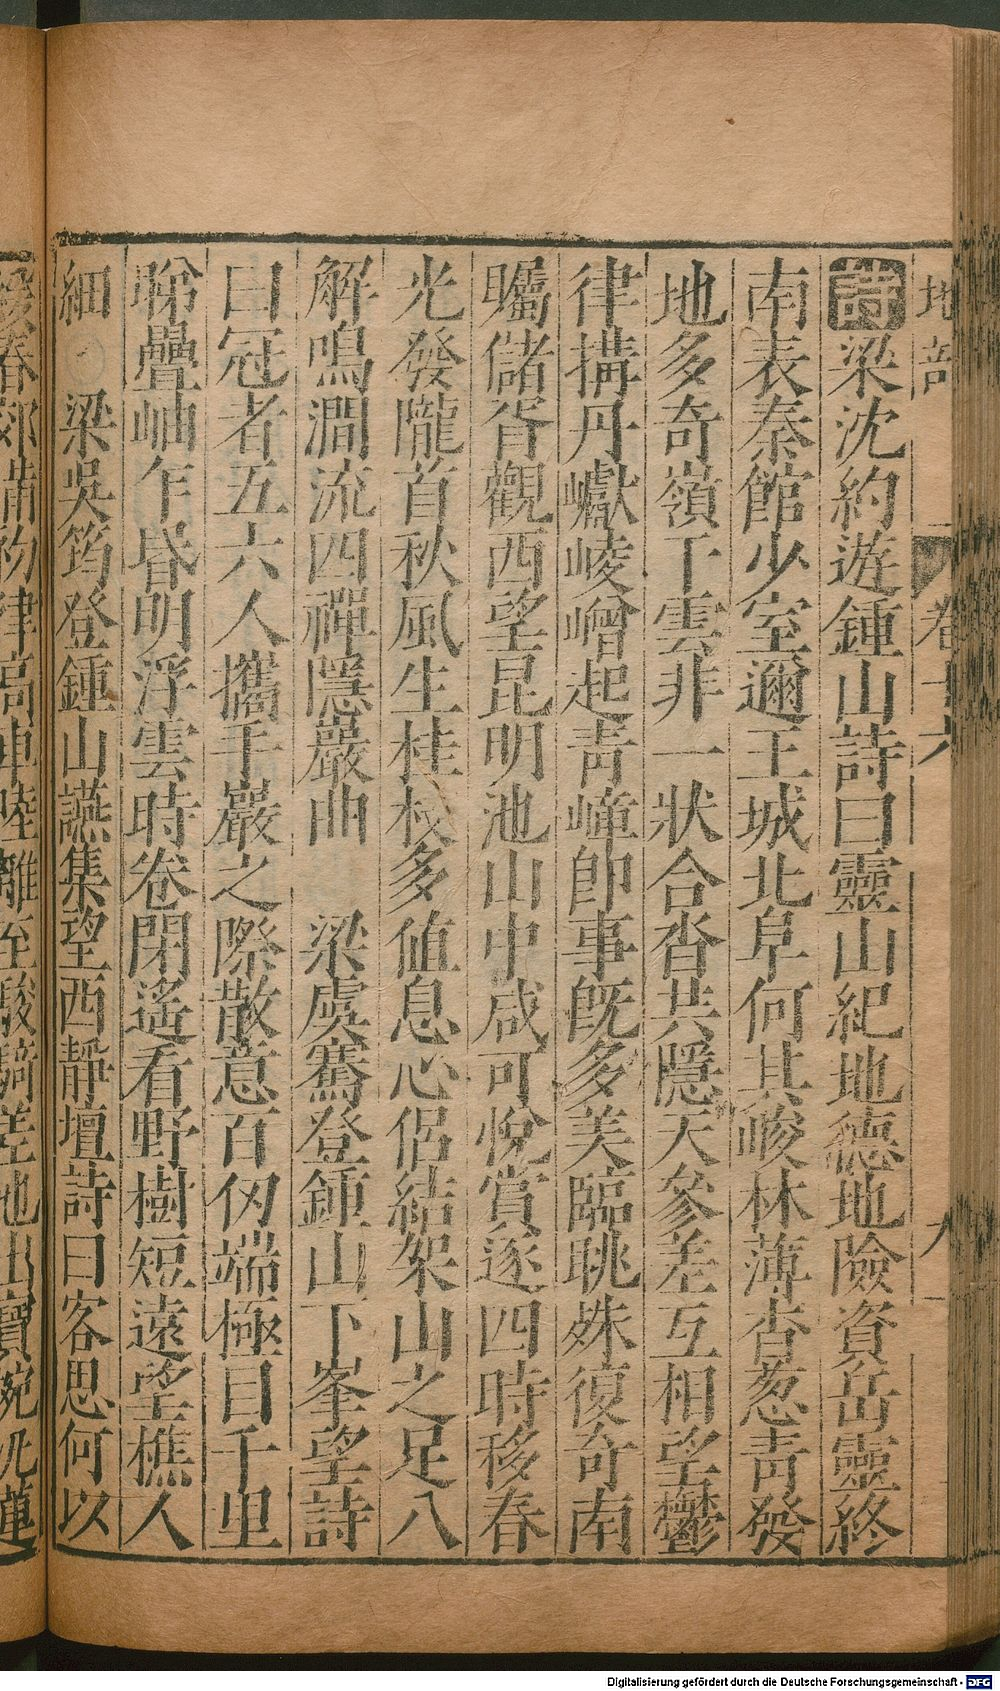 地部
卷十六
九
詩梁沈約遊鍾山詩曰靈山紀地德地險資岳靈終
南表秦館少室邇王城北阜何其峻林薄杳葱青發
地多奇嶺干雲非一狀合沓共隱天參差互相望鬱
律搆丹巘崚嶒起青嶂即事既多美臨眺殊復奇南
矚儲胥觀西望昆明池山中咸可悅賞逐四時移春
光發隴首秋風生桂枝多值息心侶結架山之足八
解鳴澗流四禪隱巖曲　梁虞騫登鍾山下峯望詩
曰冠者五六人攜手巖之際散意百仞端極目千里
睇疊岫乍昏明浮雲時卷閉遙看野樹短遠望樵人
細　梁吳筠登鍾山讌集望西靜壇詩曰客思何以
春郊
物律高車陸離至駿騎差池出寶
Digitalisierung gefördert durch die Deutsche Forschungsgemeinschaft - DFG